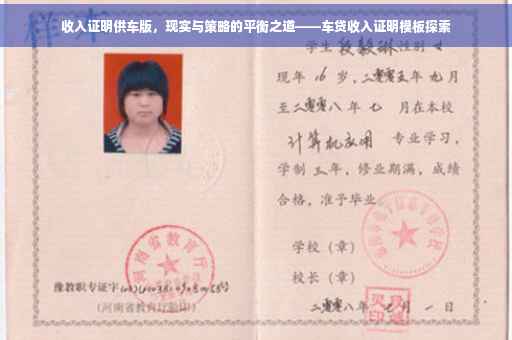 收入证明供车版，现实与策略的平衡之道——车贷收入证明模板探索
样本
学生段毅琳性别女
现年16岁，二零零五年九月
至二零零八年七月在本校
计算机应用专业学习，
学制三年，修业期满，成绩
合格，准予毕业。
学校（章）
校长（章）
豫教职专证字
（河南省教育厅验印）
二零零八年七月一日
河南省教育厅